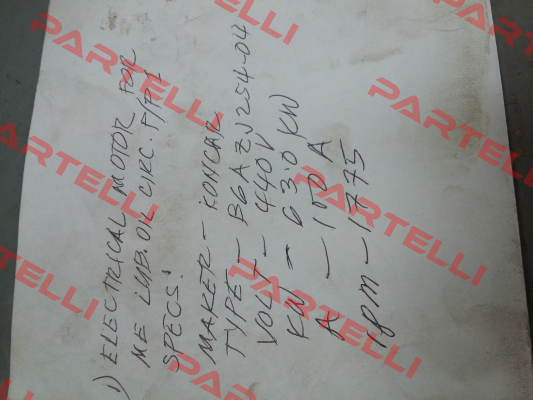 1) ELECTRICAL MOTOR FOR
ME LUB. OIL CIRC. P/P 1
SPECS:
MAKER - KONCAR
TYPE - B6A ZJ254-04
VOLT - 440V
KW - 63.0 KW
A - 100 A
rpm - 1775
PARTELLI
PARTELLI
PARTELLI
PARTELLI
PARTELLI
PARTELLI
PARTELLI
PARTELLI